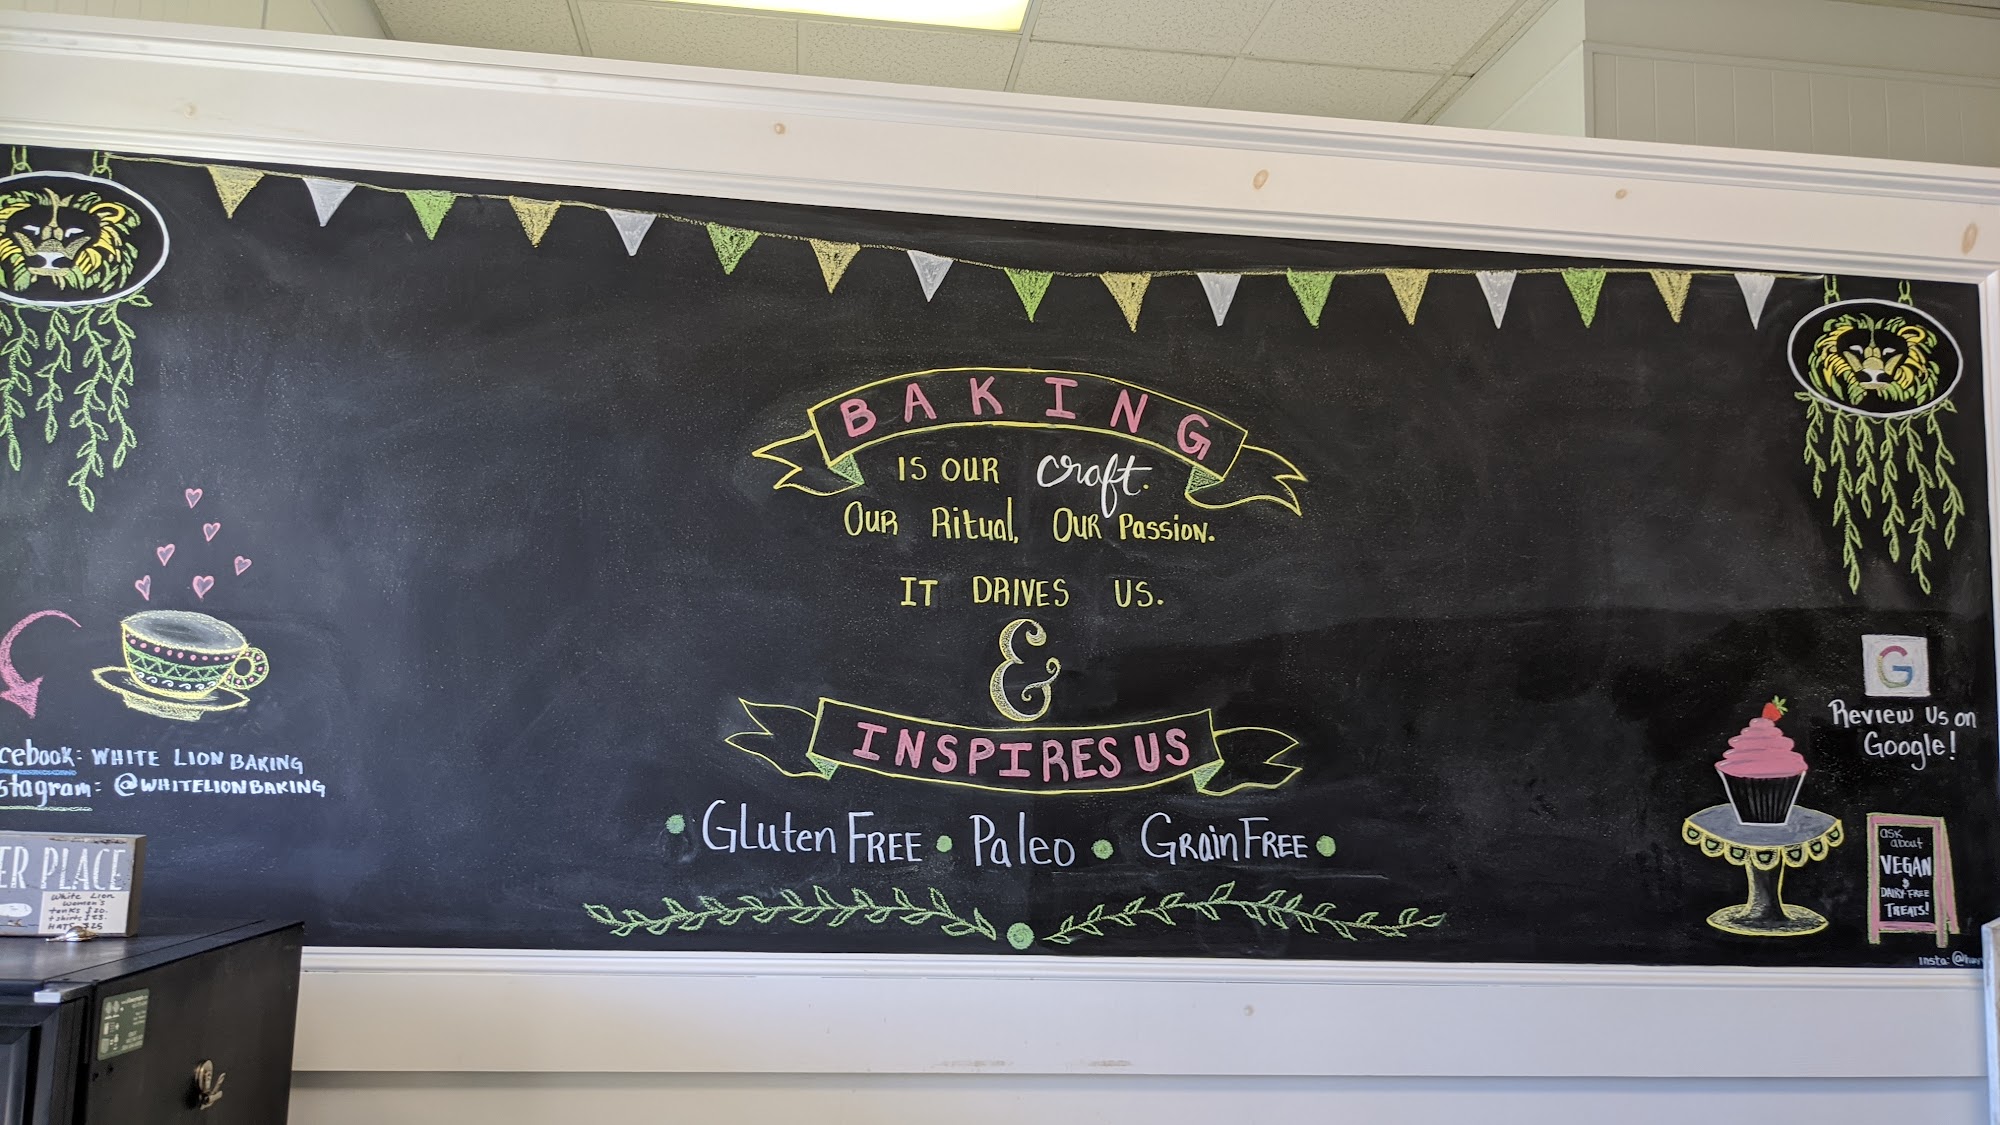 BAKING
IS OUR craft.
OUR RITUAL, OUR PASSION.
IT DRIVES US.
&
INSPIRES US
Gluten FREE • Paleo • Grain FREE •
cebook: WHITE LION BAKING
stagram: @WHITELIONBAKING
ER PLACE
White Lion
Women's
tanks $20.
HATS $25
G
Review Us on
Google!
ask
about
VEGAN
&
DAIRY-FREE
TREATS!
insta: